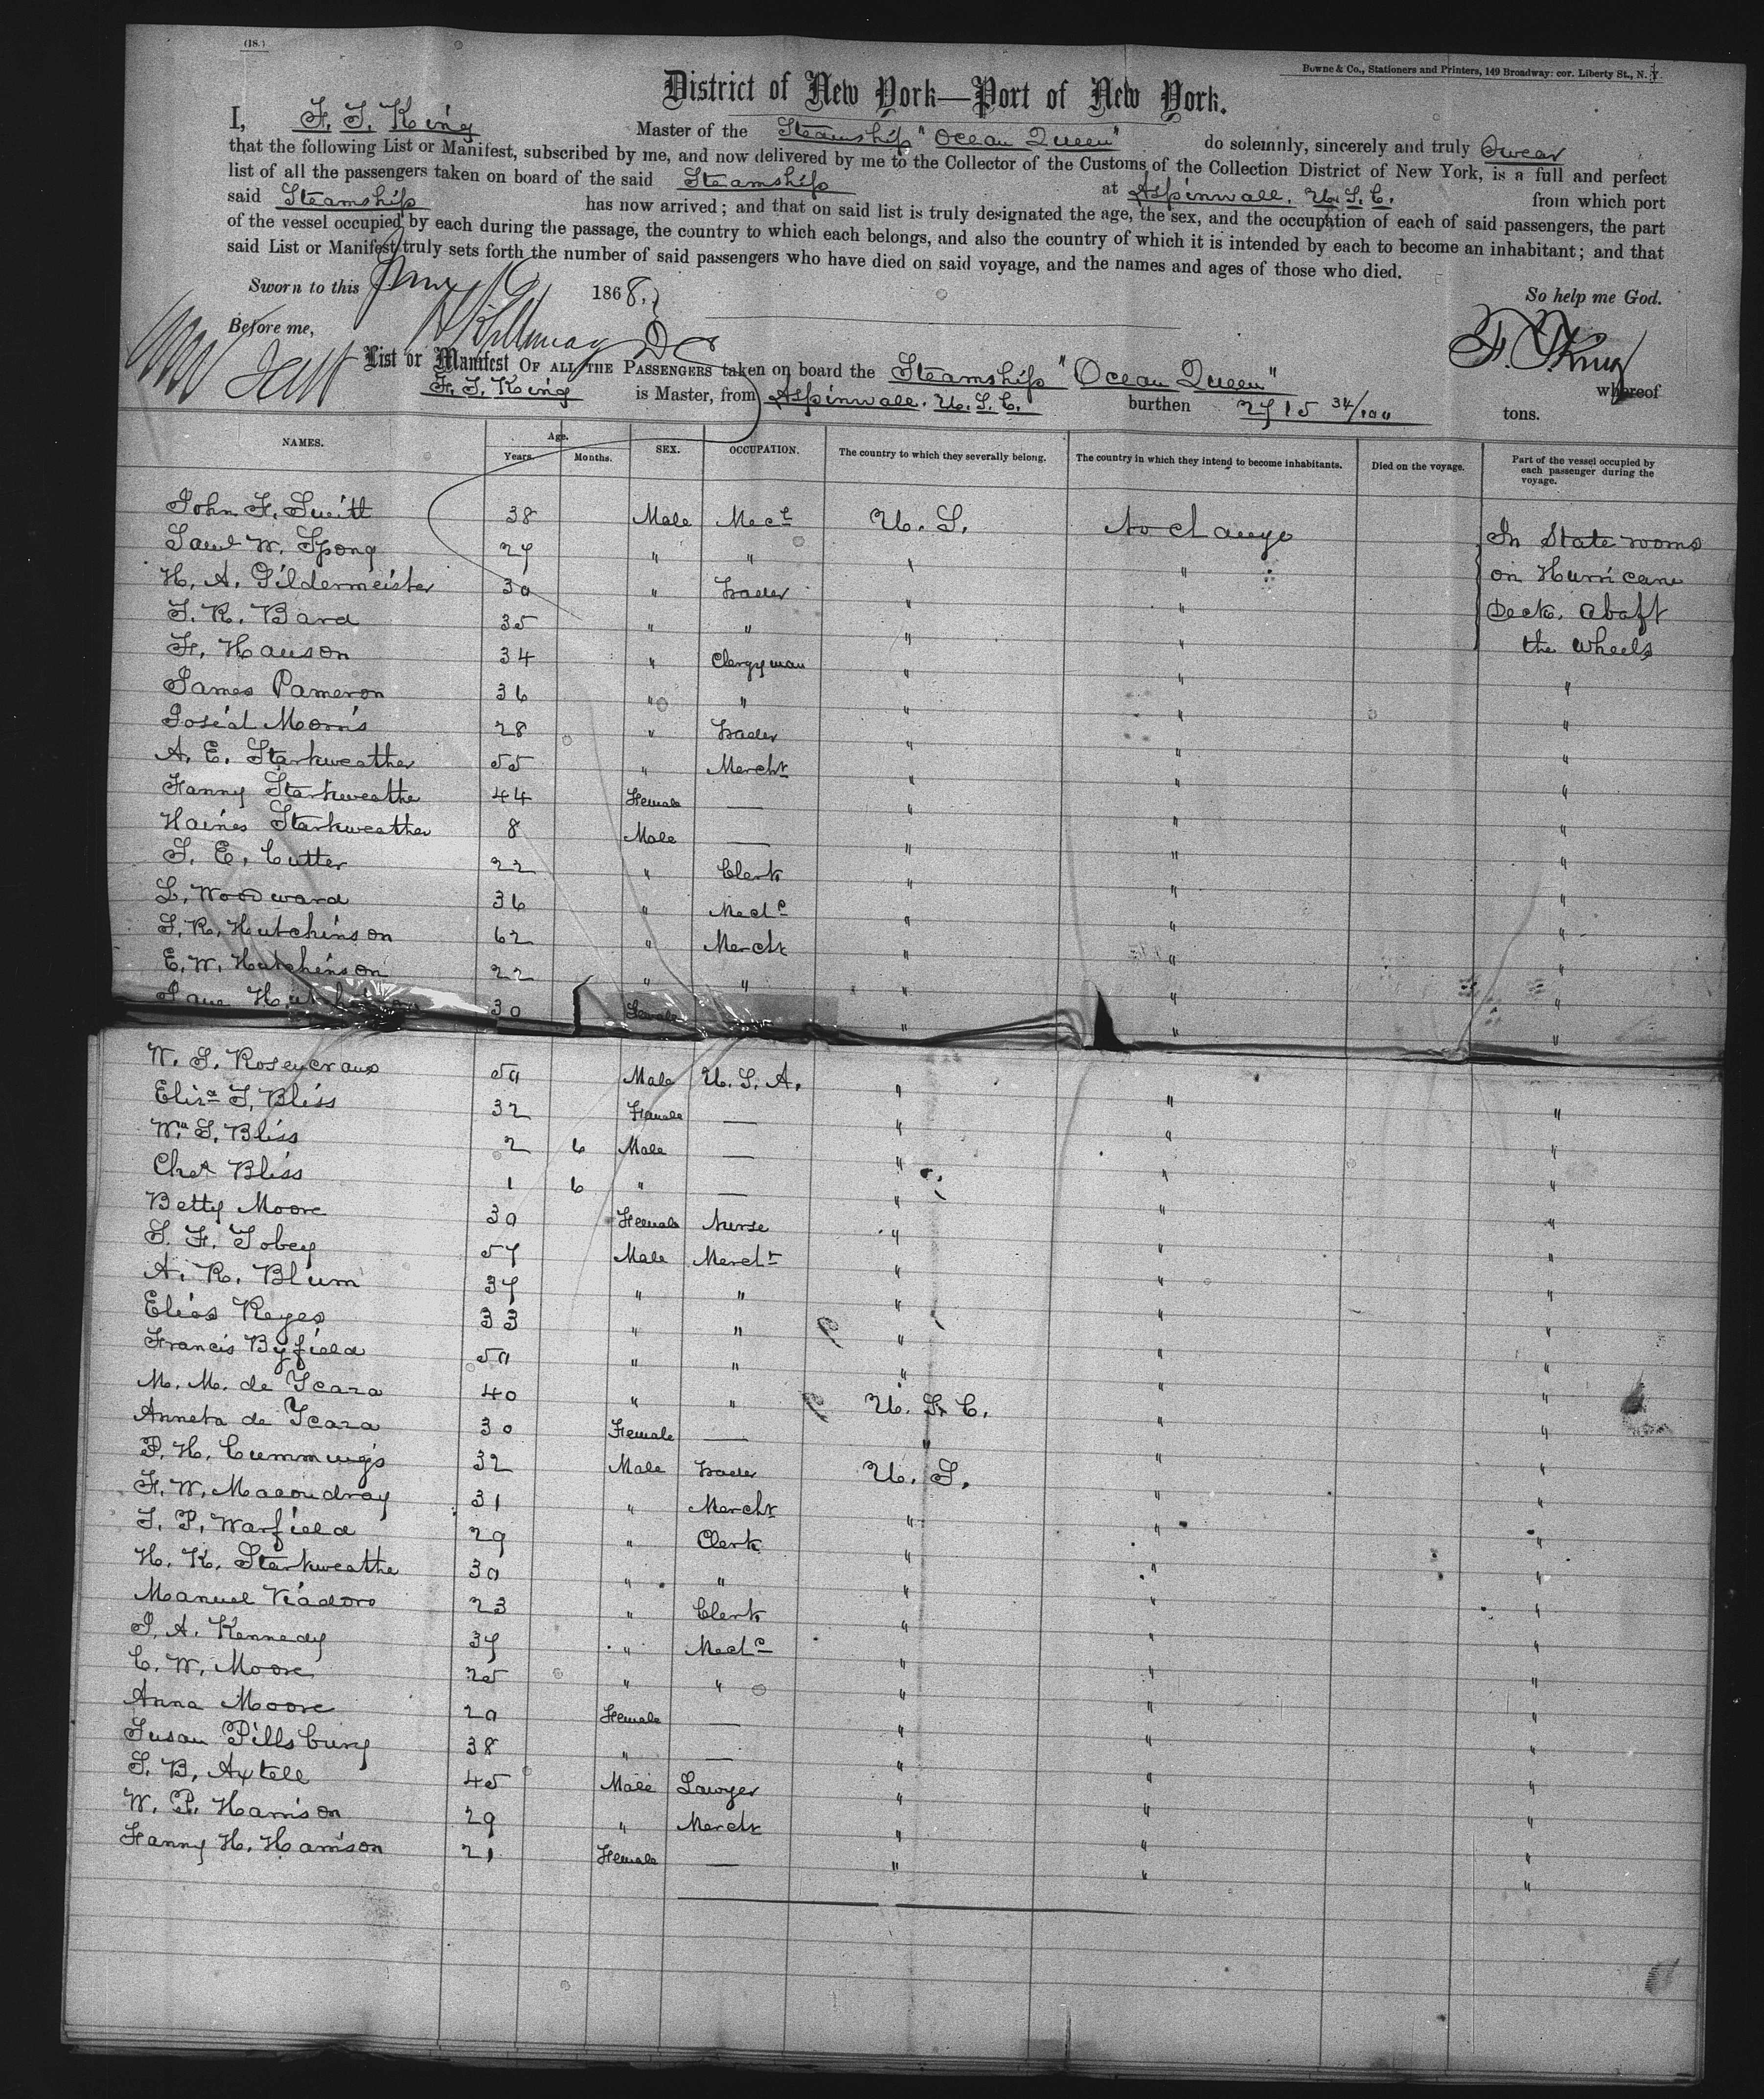 (18.)
Bowne & Co., Stationers and Printers, 149 Broadway: cor. Liberty St., N. Y.
District of New York—Port of New York.
I, F. T. King Master of the Steamship "Ocean Queen" do solemnly, sincerely and truly Swear
that the following List or Manifest, subscribed by me, and now delivered by me to the Collector of the Customs of the Collection District of New York, is a full and perfect
list of all the passengers taken on board of the said Steamship at Aspinwall. U. S. C. from which port
said Steamship has now arrived; and that on said list is truly designated the age, the sex, and the occupation of each of said passengers, the part
of the vessel occupied by each during the passage, the country to which each belongs, and also the country of which it is intended by each to become an inhabitant; and that
said List or Manifest truly sets forth the number of said passengers who have died on said voyage, and the names and ages of those who died.
Sworn to this 1868. So help me God.
Before me, F. T. King
List or Manifest OF ALL THE PASSENGERS taken on board the Steamship "Ocean Queen" whereof
F. T. King is Master, from Aspinwall. U. S. C. burthen 2715 34/100 tons.
NAMES. Age. Years. Months. SEX. OCCUPATION. The country to which they severally belong. The country in which they intend to become inhabitants. Died on the voyage. Part of the vessel occupied by each passenger during the voyage.
John F. 38 Male U. S. No change In State rooms
Saml W. Spong 27 " " " " on Hurricane
H. A. Gildermeister 30 " Trader " " Deck. abaft
J. R. Bard 35 " " " " the Wheels
F. Hauson 34 " Clergyman " " "
James Pameron 36 " " " " "
Morris 28 " Trader " " "
A. E. Starkweather 55 " Mercht " " "
Fanny Starkweathe 44 Female — " " "
Haines Starkweather 8 Male — " " "
J. E. Cutter 22 " Clerk " " "
L. Woodward 36 " Mecc " " "
J. R. Hutchinson 62 " Mercht " " "
E. W. Hutchinson 22 " " " " "
Jane 30 Female " " "
W. S. Rosencrans 50 Male U. S. A. " " "
Eliza J. Bliss 32 Female — " " "
Wm. J. Bliss 2 6 Male — " " "
Chas Bliss 1 6 " — " " "
Betty Moore 30 Female Nurse " " "
S. F. Tobey 57 Male Mercht " " "
A. R. Blum 37 " " " " "
Elias Reyes 33 " " " " "
Francis Byfield 50 " " " " "
M. M. de Ycaza 40 " " U. S. C. " "
Anneta de Ycaza 30 Female — " " "
P. H. Cummings 32 Male Trader U. S. " "
F. W. Macondray 31 " Mercht " " "
J. P. Warfield 29 " Clerk " " "
H. K. Starkweathe 30 " " " " "
Manuel 23 " Clerk " " "
J. A. Kennedy 37 " Mecc " " "
C. W. Moore 25 " " " " "
Anna Moore 20 Female — " " "
Susan Pillsbury 38 " — " " "
S. B. Axtell 45 Male Lawyer " " "
W. P. Harrison 29 " Mercht " " "
Fanny H. Harrison 21 Female — " " "